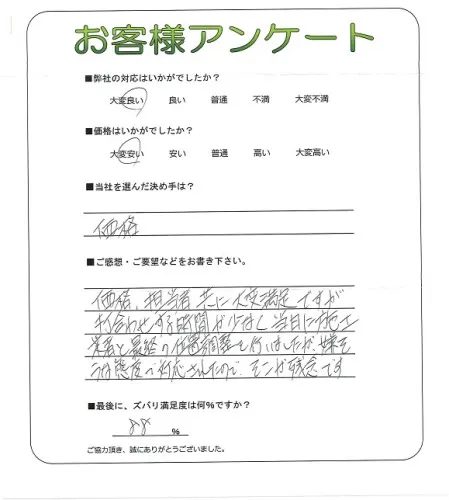 お客様アンケート
■弊社の対応はいかがでしたか？
大変良い 良い 普通 不満 大変不満
■価格はいかがでしたか？
大変安い 安い 普通 高い 大変高い
■当社を選んだ決め手は？
価格
■ご感想・ご要望などをお書き下さい。
価格、担当者共に大変満足ですが
打合わせする時間が少なく当日に施工
業者と最終の位置調整を行いましたが、嫌そ
うな態度で対応されたので、そこが残念です
■最後に、ズバリ満足度は何％ですか？
88 %
ご協力頂き、誠にありがとうございました。